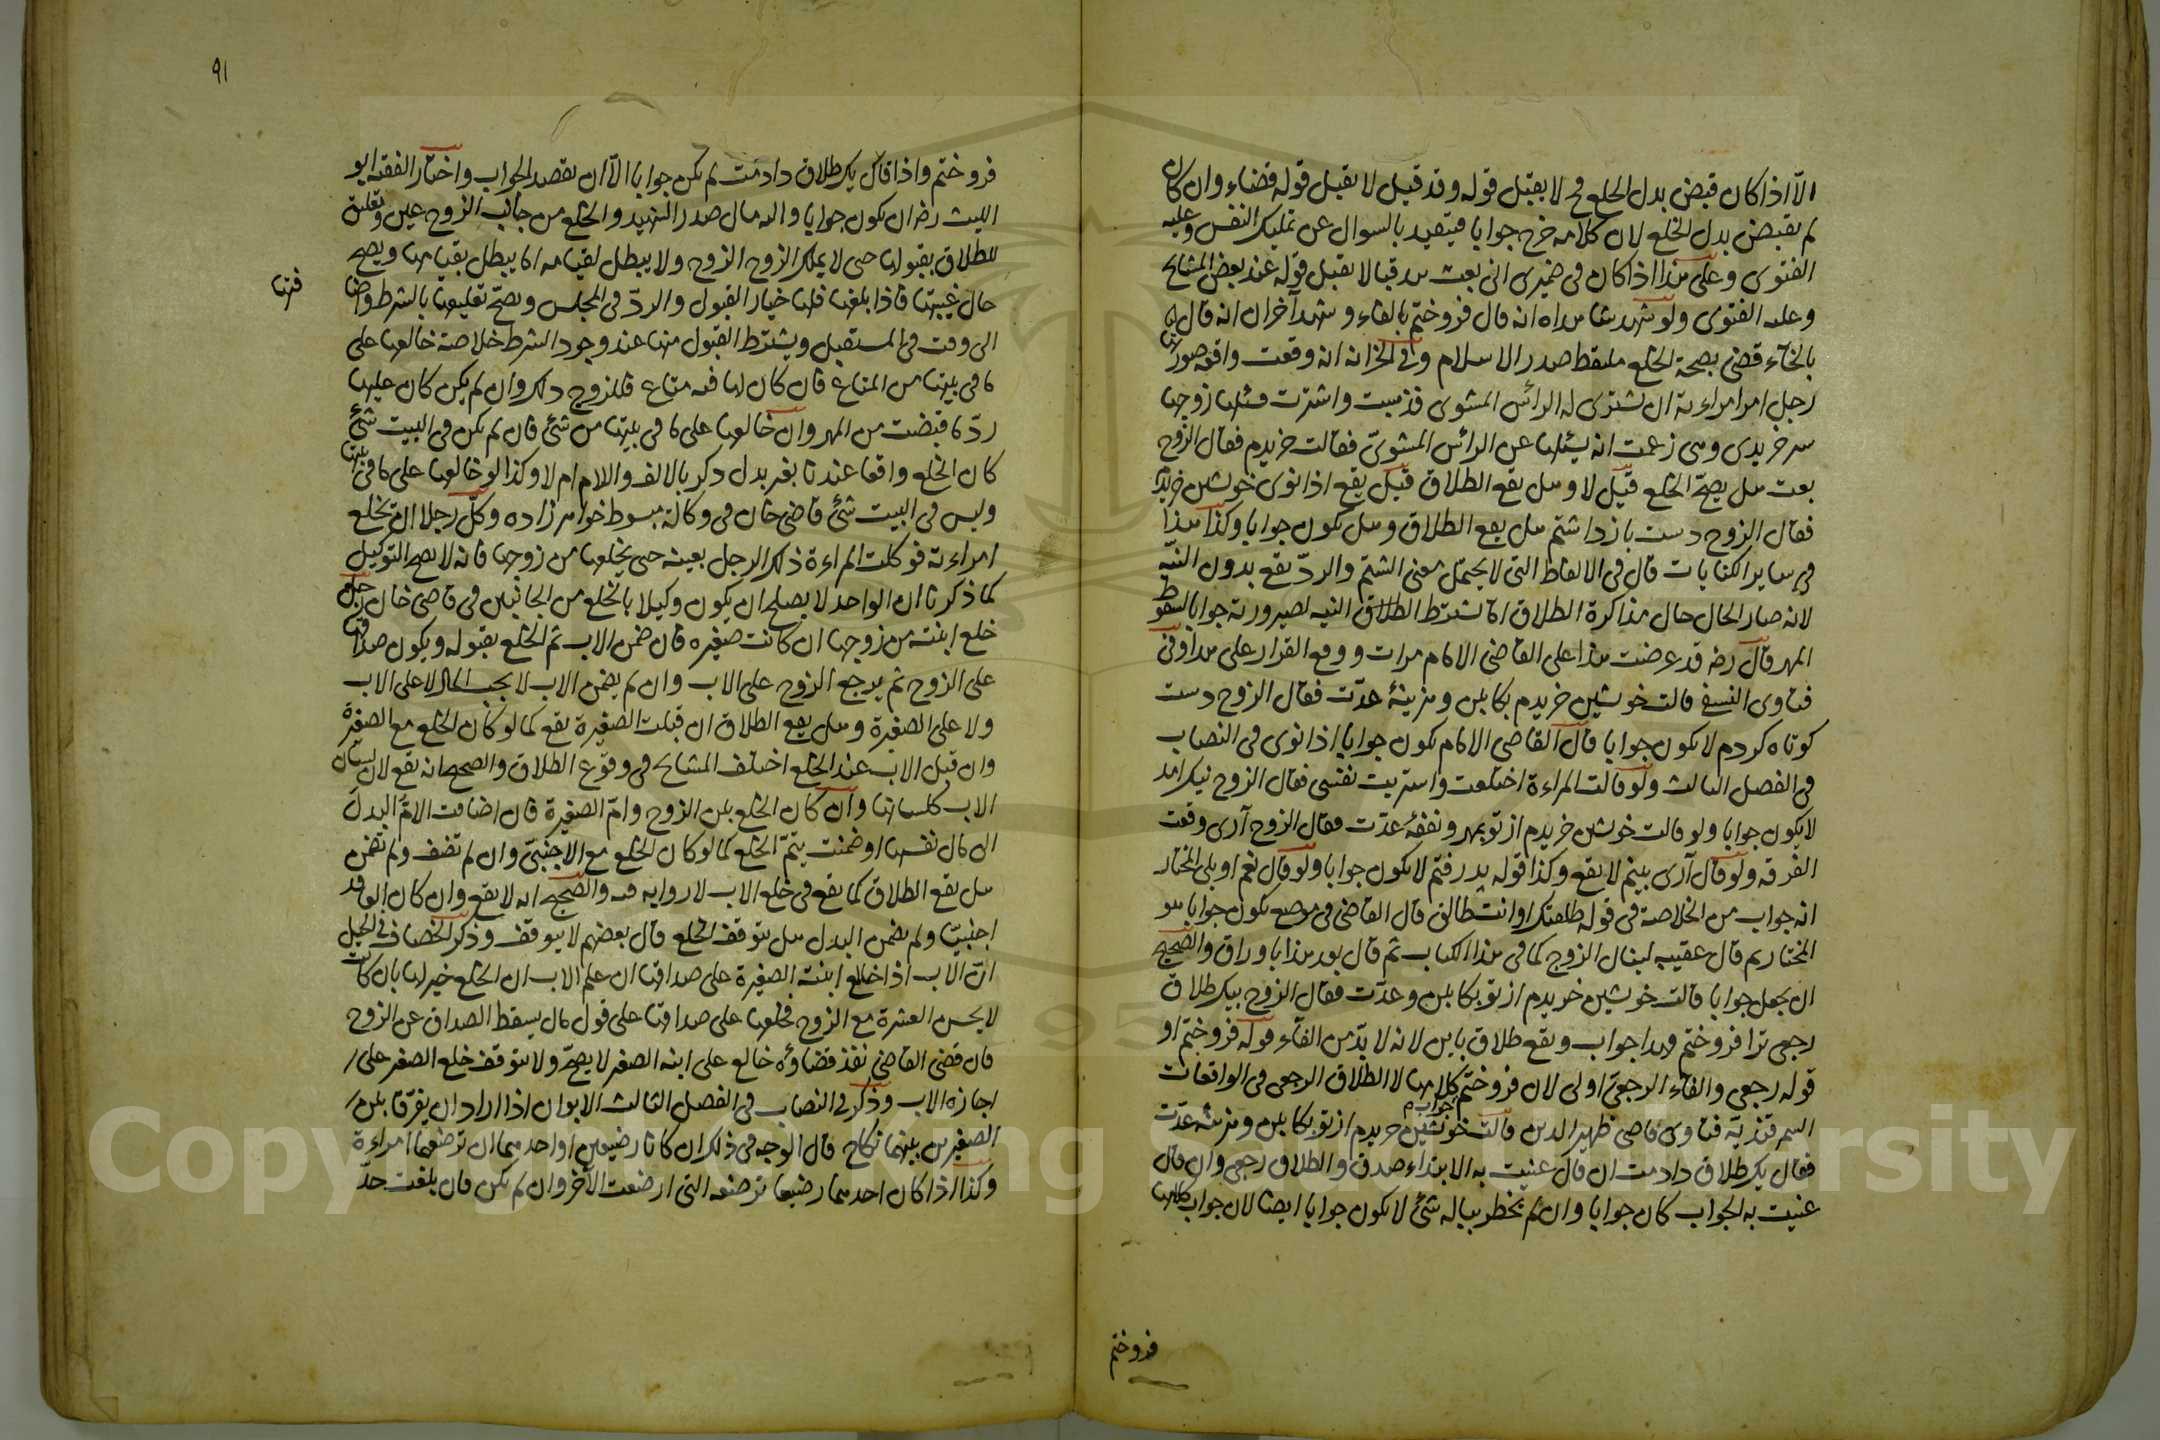 الا اذا كان قبض بدل الخلع فح لا يقبل قوله وقد قيل لا يقبل قوله قضاء وان كان
لم يقبض بدل الخلع لان كلامه خرج جوابا فيتقيد بالسوال عن تمليك النفس وعليه
الفتوى وعلى هذا اذا كان فى ضميرى انى بعت لا يقبل قوله عند بعض المشايخ
وعليه الفتوى ولو شهد شاهداه انه قال فروختم بالفاء وشهد آخران انه قال
بالخاء قضى بصحة الخلع ملتقط صدر الاسلام وفى الخزانة انه وقعت واقعة صورتها
رجل امر امراءته ان تشترى له الرائس المشوى فذهبت واشترت فسئلها زوجها
سر خريدى وهى زعمت انه يسئلها عن الرائس المشوى فقالت خريدم فقال الزوج
بعت هل يصح الخلع قيل لا وهل يقع الطلاق قيل يقع اذا نوى خوشتن خريدم
فقال الزوج دست باز داشتم هل يقع الطلاق وهل يكون جوابا وكذا هذا
فى ساير الكنايات قال فى الالفاظ التى لا يحتمل معنى الشتم والرد يقع بدون النية
لانه صار الحال حال مذاكرة الطلاق اما شترط الطلاق النيه لصيرورته جوابا لسقوط
المهر قال رضه قد عرضت هذا على القاضى الامام مرات ووقع القرار على هذا وفى
فتاوى النسفى قالت خوشتين خريدم بكابين وهزينهٔ عدت فقال الزوج دست
كوتاه كردم لا يكون جوابا قال القاضى الامام يكون جوابا اذا نوى فى النصاب
فى الفصل الثالث ولو قالت المراءة اختلعت واشتريت نفسى فقال الزوج نيك امد
لا يكون جوابا ولو قالت خوشتن خريدم از تو بمهر ونفقهٔ عدت فقال الزوج آرى وقعت
الفرقه ولو قال آرى بينم لا يقع وكذا قوله پذرفتم لا يكون جوابا ولو قال نعم او بلى المختار
انه جواب من الخلاصة فى قوله طلقتك او انت طالق قال القاضى فى موضع يكون جوابا هو
المختار ثم قال عقيبه الزوج كما فى هذا الكتاب ثم قال بعد هذا باوراق والصحيح
ان يجعل جوابا قالت خوشتين خريدم از تو بكابين وعدت فقال الزوج بيك طلاق
رجعى ترا فروختم فهذا جواب ويقع طلاق باين لانه لا بد من الغاء قوله فروختم او
قوله رجعى والغاء الرجعى اولى لان فروختم جواب كلامها لا الطلاق الرجعى فى الواقعات
السمرقندية فتاوى قاضى ظهير الدين قالت خوشتين خريدم از تو بكابين وهزينه عدت
فقال يك طلاق دادمت ان قال عنيت به الابتداء صدق والطلاق رجعى وان قال
عنيت به الجواب كان جوابا وان لم يخطر بباله شئ لا يكون جوابا ايضا لان جواب كلامها
فروختم
٩١
فروختم واذا قال يك طلاق دادمت لم يكن جوابا الا ان يقصد الجواب واختار الفقيه ابو
الليث رضه ان يكون جوابا واليه مال صدر الشهيد والخلع من جانب الزوج يمين وتعليق
للطلاق بقبولها حتى لا يملك الزوج الزوج ولا يبطل لقيامه اما يبطل بقيامها ويصح
حال غيبتها فاذا بلغها فلها خيار القبول والرد فى المجلس ويصح تعليقها بالشرط واضا
فتها
الى وقت فى المستقبل ويشترط القبول منها عند وجود الشرط خلاصة خالعها على
ما فى بيتها من المتاع فان كان لها فيه متاع فللزوج ذلك وان لم يكن كان عليها
رد ما قبضت من المهر وان خالعها على ما فى بيتها من شئ فان لم يكن فى البيت شئ
كان الخلع واقعا عندنا بغير بدل ذكر بالالف واللام ام لا وكذا لو خالعها على ما فى بيتها
وليس فى البيت شئ قاضى خان فى وكالة مبسوط خواهر زاده وكل رجلا ان تخلع
امراءته فوكلت المراءة ذلك الرجل بعينه حتى يخلعها من زوجها فانه لا يصح التوكيل
كما ذكرنا ان الواحد لا يصلح ان يكون وكيلا بالخلع من الجانبين فى قاضى خان رجل
خلع ابنته من زوجها ان كانت صغيره فان ضمن الاب تم الخلع بقبوله ويكون صداقها
على الزوج ثم يرجع الزوج على الاب وان لم يضمن الاب لا يجب المال لا على الاب
ولا على الصغيرة وهل يقع الطلاق ان قبلت الصغيرة يقع كما لو كان الخلع مع الصغيرة
وان قبل الاب عند الخلع اختلف المشايخ فى وقوع الطلاق والصحيح انه يقع لان لسان
الاب كلسانها وان كان الخلع بين الزوج وام الصغيرة فان اضافت الام البدل
الى مال نفسها او ضمنت يتم الخلع كما لو كان الخلع مع الاجنبى وان لم تضف ولم تضمن
هل يقع الطلاق كما يقع فى خلع الاب لا روايه فيه والصحيح انه لا يقع وان كان العاقد
اجنبيا ولم يضمن البدل هل يتوقف الخلع قال بعضهم لا يتوقف وذكر الخصاف فى الحيل
ان الاب اذا خالع ابنته الصغيرة على صداقها ان علم الاب ان الخلع خير لها بان كانت
لا يحسن العشرة مع الزوج فخلعها على صداقها على قول مالك يسقط الصداق عن الزوج
فان قضى القاضى نفذ قضاؤه خالع على ابنه الصغير لا يصح ولا يتوقف خلع الصغير على
اجازه الاب وذكر فى النصاب فى الفصل الثالث الابوان اذا اراد ان يفرقا بين
الصغيرين بينهما نكاح قال الوجه فى ذلك ان كانا رضيعين او احدهما ان ترضعهما امراءة
وكذا اذا كان احدهما رضيعا ترضعه التى ارضعت الآخر وان لم يكن فان بلغت حد